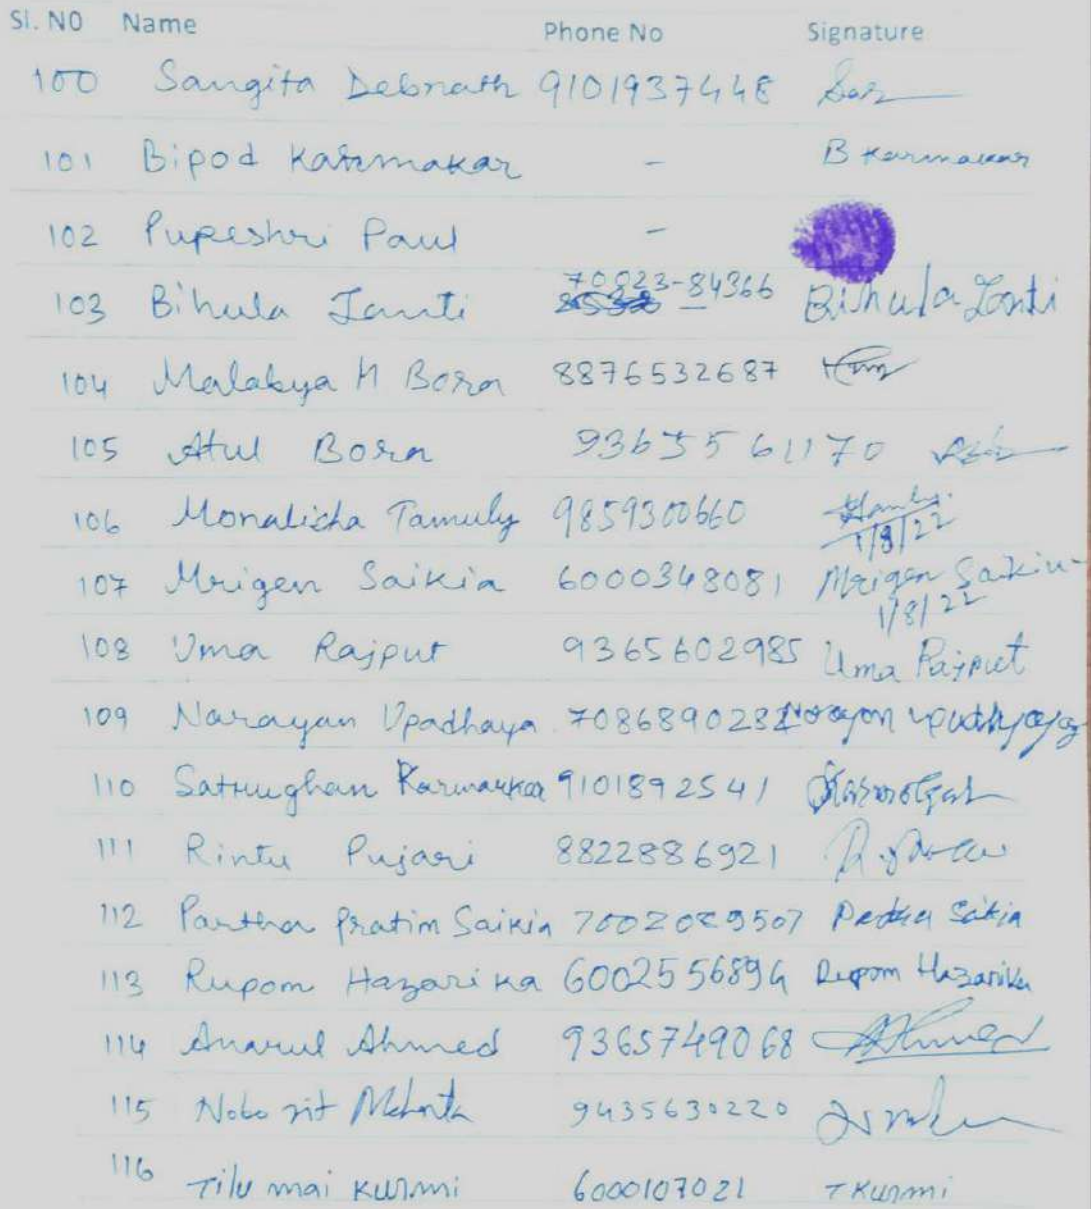 Sl. NO Name Phone No Signature
100 Sangita Debnath 9101937448
101 Bipod Karmakar - B Karmakar
102 Pupeshri Paul -
103 Bihula Tanti 70823-84366 Bihula Tanti
104 Malabya H Bora 8876532687
105 Atul Bora 9365561170
106 Monalisha Tamuly 9859300660 1/8/22
107 Mrigen Saikia 6000348081 Mrigen Saikia
1/8/22
108 Uma Rajput 9365602985 Uma Rajput
109 Narayan Upadhaya 7086890282
110 Satrughan Karmarkar 9101892541
111 Rintu Pujari 8822886921
112 Partha Pratim Saikia 7002029507 Partha Saikia
113 Rupom Hazarika 6002556894 Rupom Hazarika
114 Anarul Ahmed 9365749068 Ahmed
115 Nobo jit Mahanta 9435630220
116 Tilu mai Kurmi 6000107021 T Kurmi